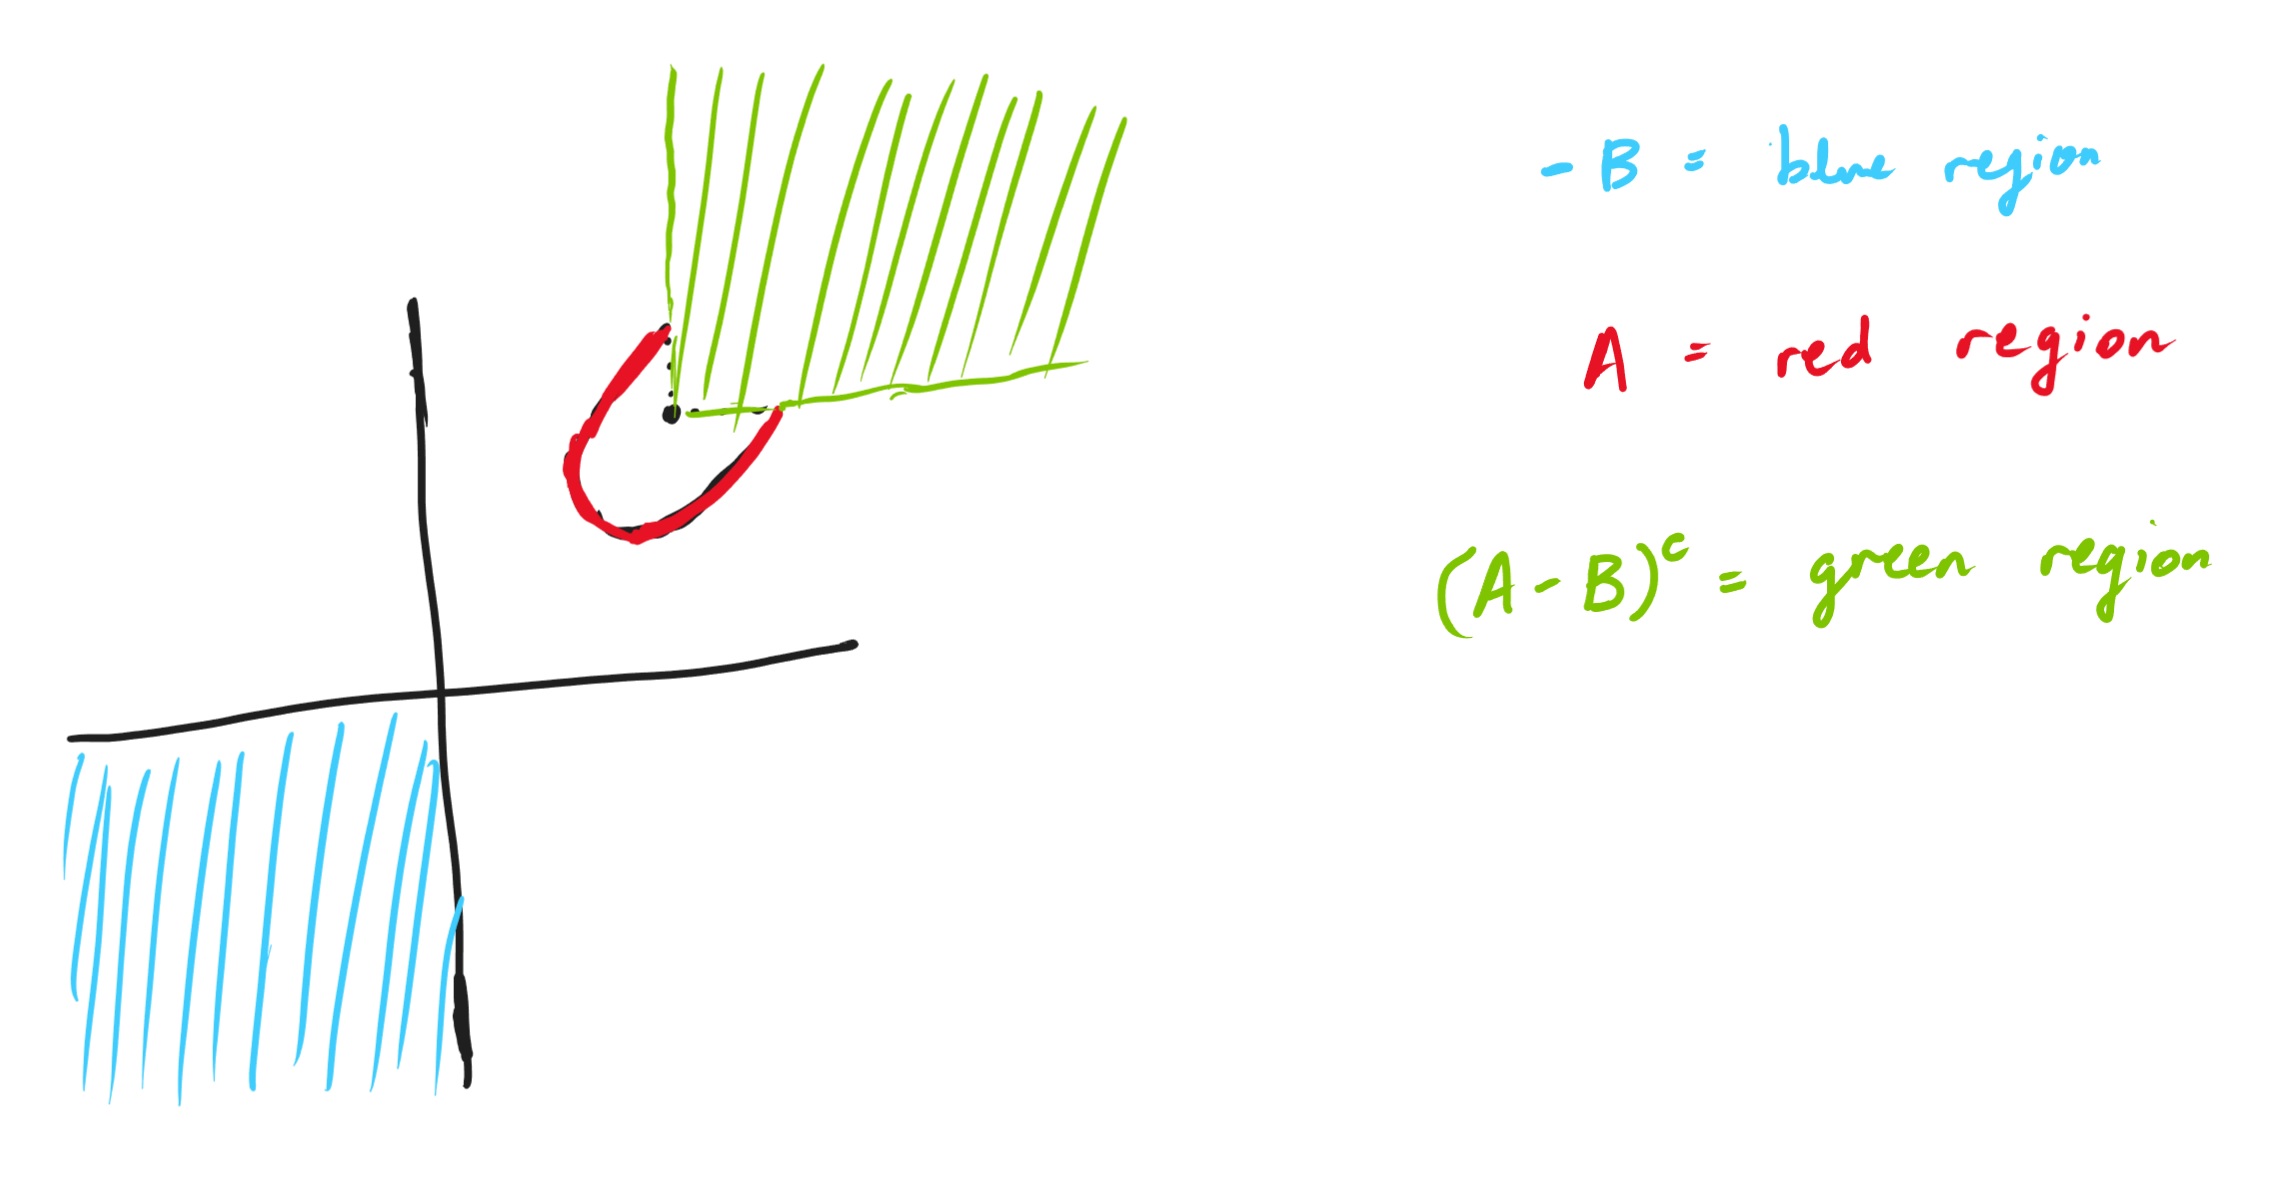 - B = blue region
A = red region
(A - B)^c = green region